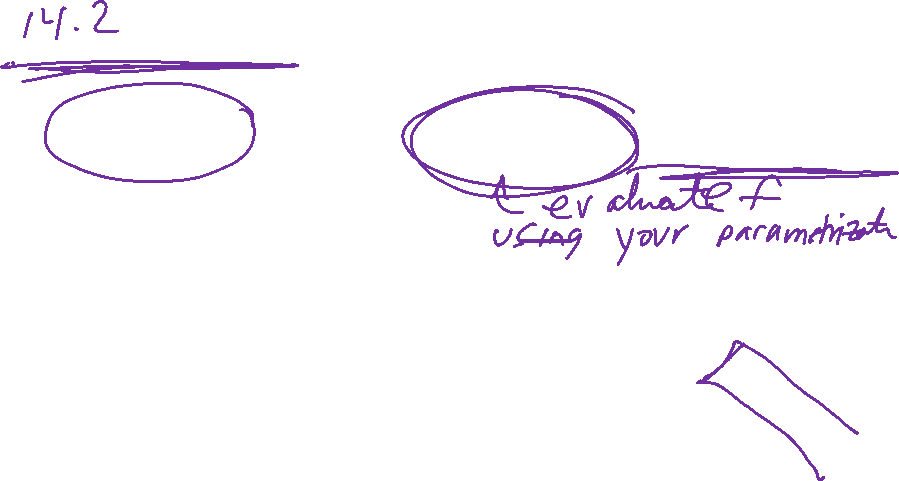 14.2
evaluate f
using your parametrizatn